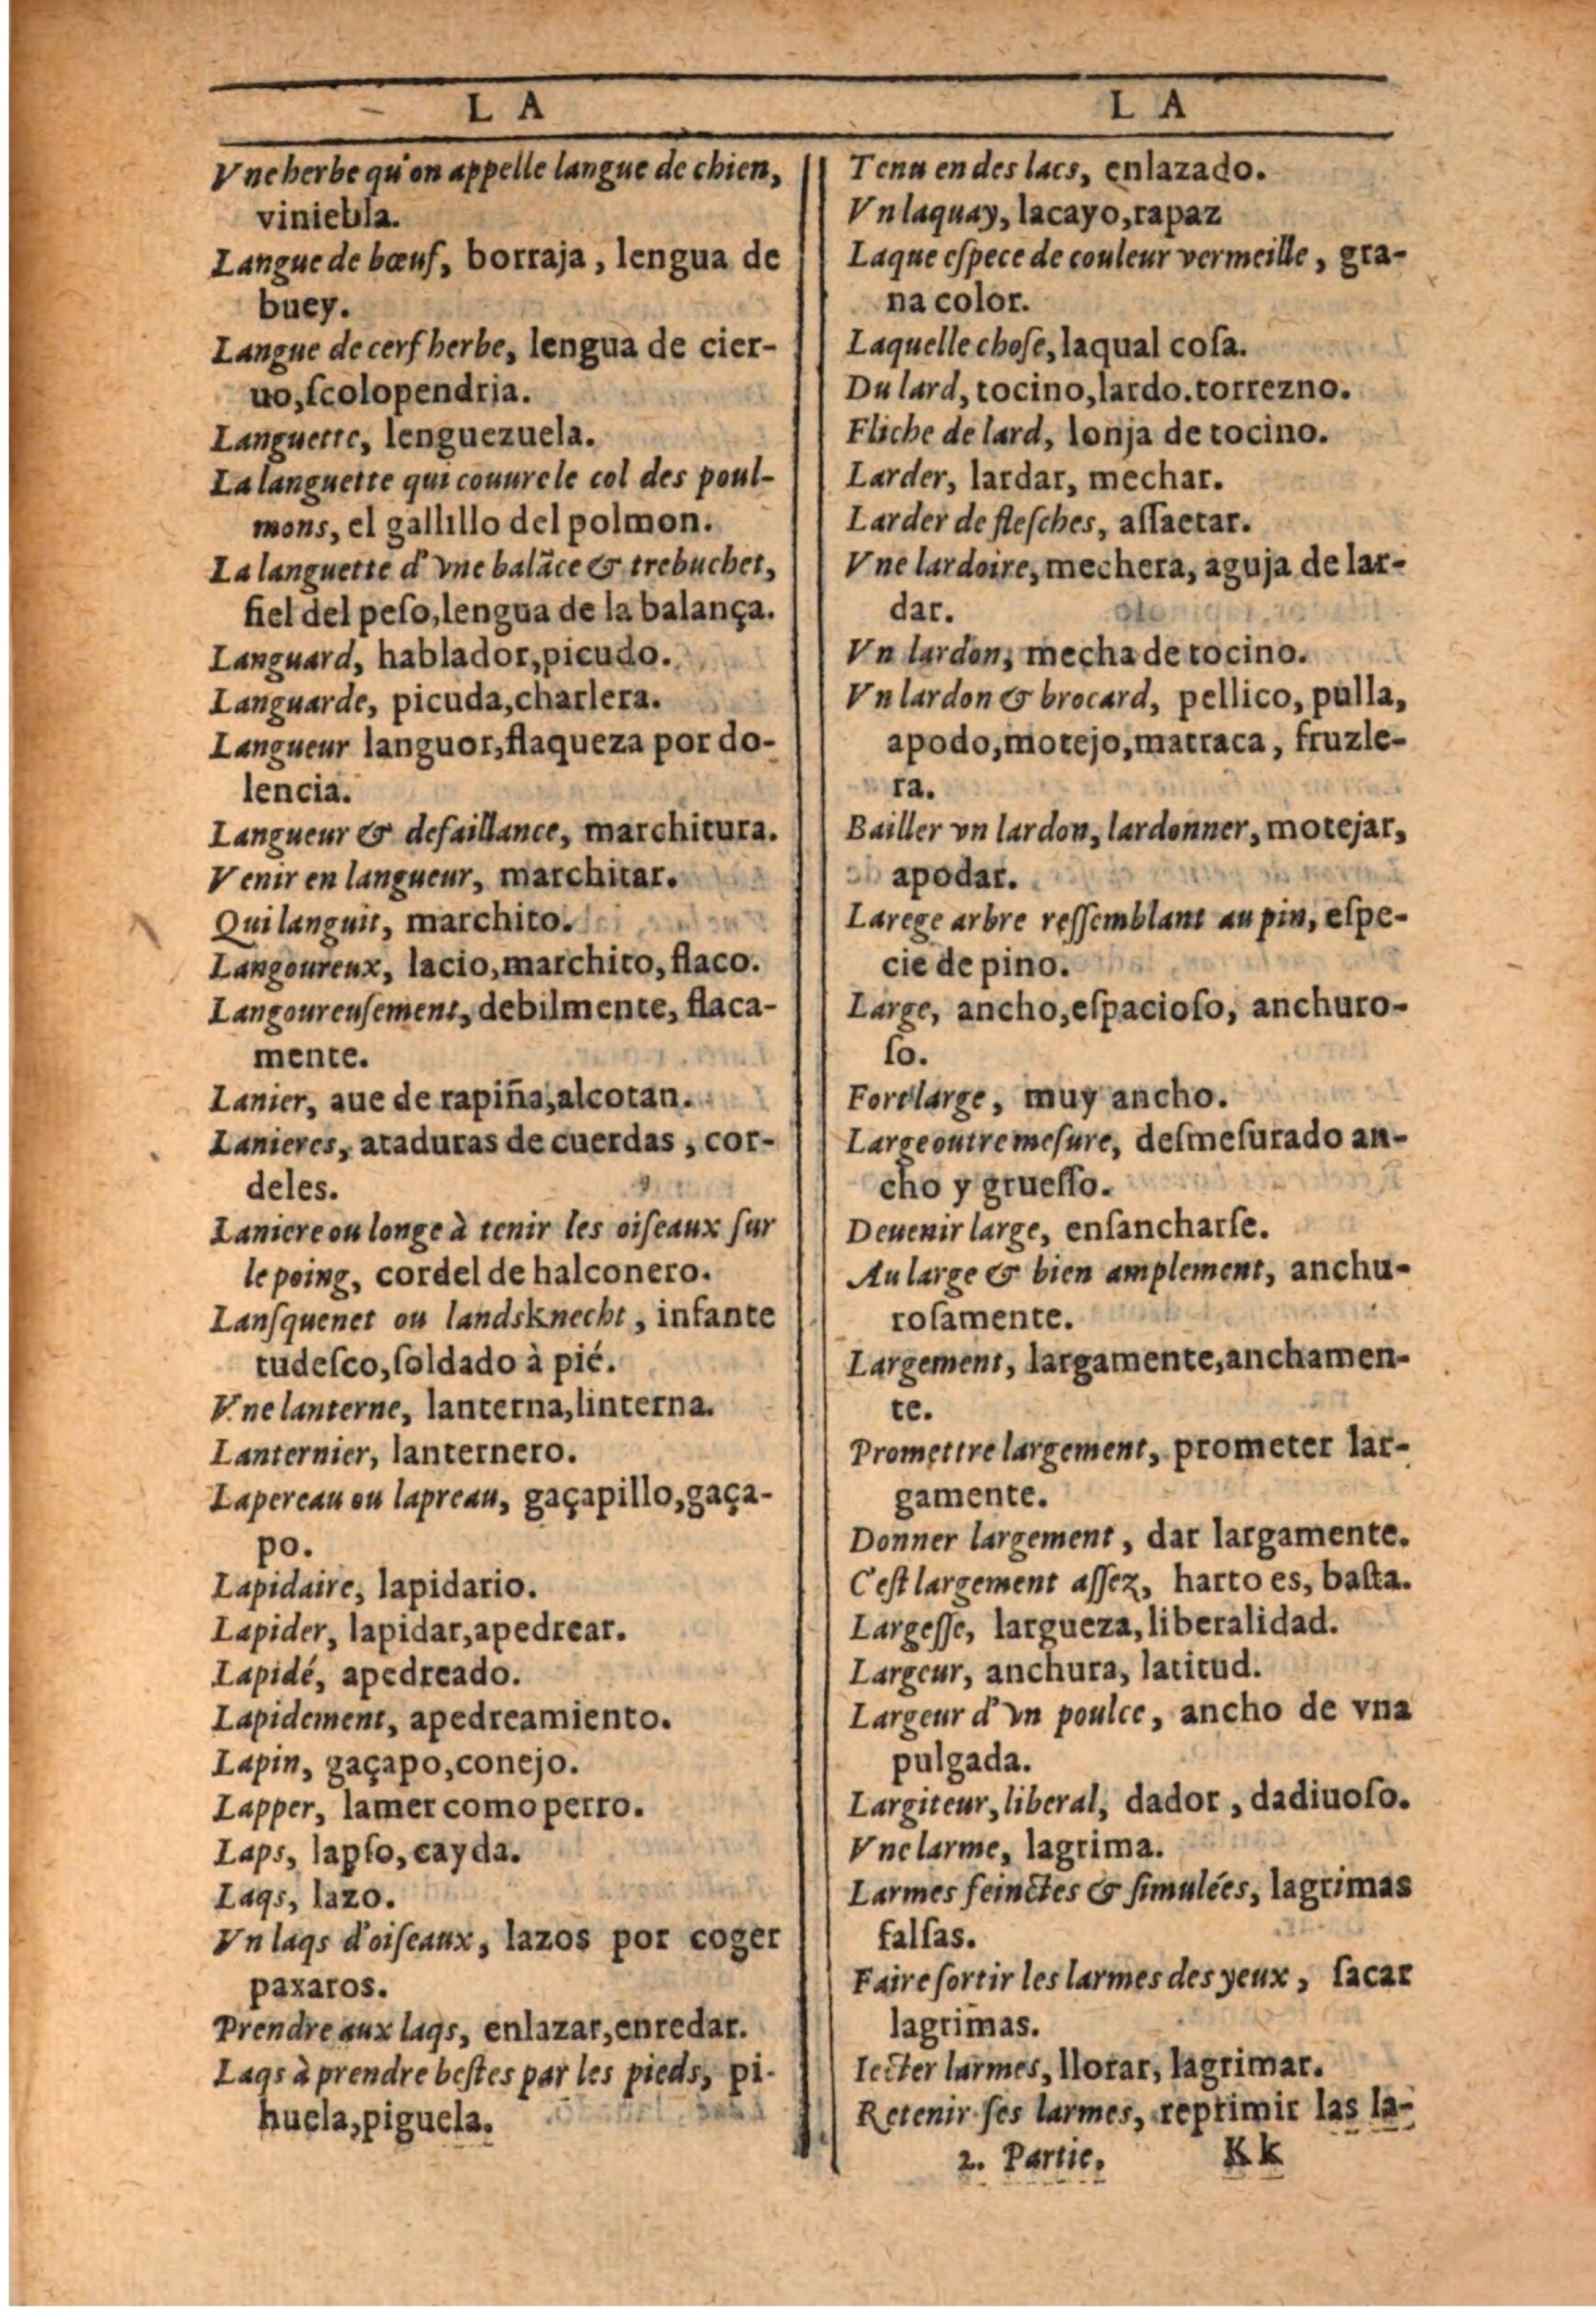 L A
Vne herbe qu'on appelle langue de chien,
viniebla.
Langue de bœuf, borraja, lengua de
buey.
Langue de cerf herbe, lengua de cier-
uo, ſcolopendria.
Languette, lenguezuela.
La languette qui couure le col des poul-
mons, el gallillo del polmon.
La languette d'vne balãce & trebuchet,
fiel del peſo, lengua de la balança.
Languard, hablador, picudo.
Languarde, picuda, charlera.
Langueur languor, flaqueza por do-
lencia.
Langueur & defaillance, marchitura.
Venir en langueur, marchitar.
Qui languit, marchito.
Langoureux, lacio, marchito, flaco.
Langoureuſement, debilmente, flaca-
mente.
Lanier, aue de rapiña, alcotan.
Lanieres, ataduras de cuerdas, cor-
deles.
Laniere ou longe à tenir les oiſeaux ſur
le poing, cordel de halconero.
Lanſquenet ou landsknecht, infante
tudeſco, ſoldado à pié.
Vne lanterne, lanterna, linterna.
Lanternier, lanternero.
Lapereau ou lapreau, gaçapillo, gaça-
po.
Lapidaire, lapidario.
Lapider, lapidar, apedrear.
Lapidé, apedreado.
Lapidement, apedreamiento.
Lapin, gaçapo, conejo.
Lapper, lamer como perro.
Laps, lapſo, cayda.
Laqs, lazo.
Vn laqs d'oiſeaux, lazos por coger
paxaros.
Prendre aux laqs, enlazar, enredar.
Laqs à prendre beſtes par les pieds, pi-
huela, piguela.
L A
Tenu en des lacs, enlazado.
Vn laquay, lacayo, rapaz
Laque eſpece de couleur vermeille, gra-
na color.
Laquelle choſe, laqual coſa.
Du lard, tocino, lardo. torrezno.
Fliche de lard, lonja de tocino.
Larder, lardar, mechar.
Larder de fleſches, aſſaetar.
Vne lardoire, mechera, aguja de lar-
dar.
Vn lardon, mecha de tocino.
Vn lardon & brocard, pellico, pulla,
apodo, motejo, matraca, fruzle-
ra.
Bailler vn lardon, lardonner, motejar,
apodar.
Larege arbre reſſemblant au pin, eſpe-
cie de pino.
Large, ancho, eſpacioſo, anchuro-
ſo.
Fort large, muy ancho.
Large outre meſure, deſmeſurado an-
cho y grueſſo.
Deuenir large, enſancharſe.
Au large & bien amplement, anchu-
roſamente.
Largement, largamente, anchamen-
te.
Promettre largement, prometer lar-
gamente.
Donner largement, dar largamente.
C'eſt largement aſſez, harto es, baſta.
Largeſſe, largueza, liberalidad.
Largeur, anchura, latitud.
Largeur d'vn poulce, ancho de vna
pulgada.
Largiteur, liberal, dador, dadiuoſo.
Vne larme, lagrima.
Larmes feinctes & ſimulées, lagrimas
falſas.
Faire ſortir les larmes des yeux, ſacar
lagrimas.
Iecter larmes, llorar, lagrimar.
Retenir ſes larmes, reprimir las la-
2. Partie. Kk